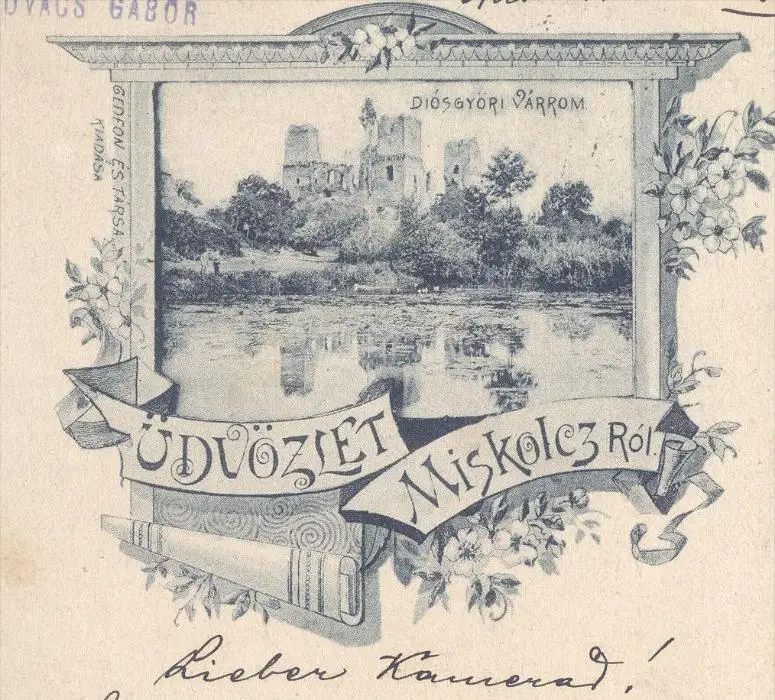 OVÁCS GÁBOR
DIÓSGYŐRI VÁRROM
GEDEON ÉS TÁRSA
KIADÁSA
ÜDVÖZLET
MISKOLCZRÓL.
Lieber Kamerad!